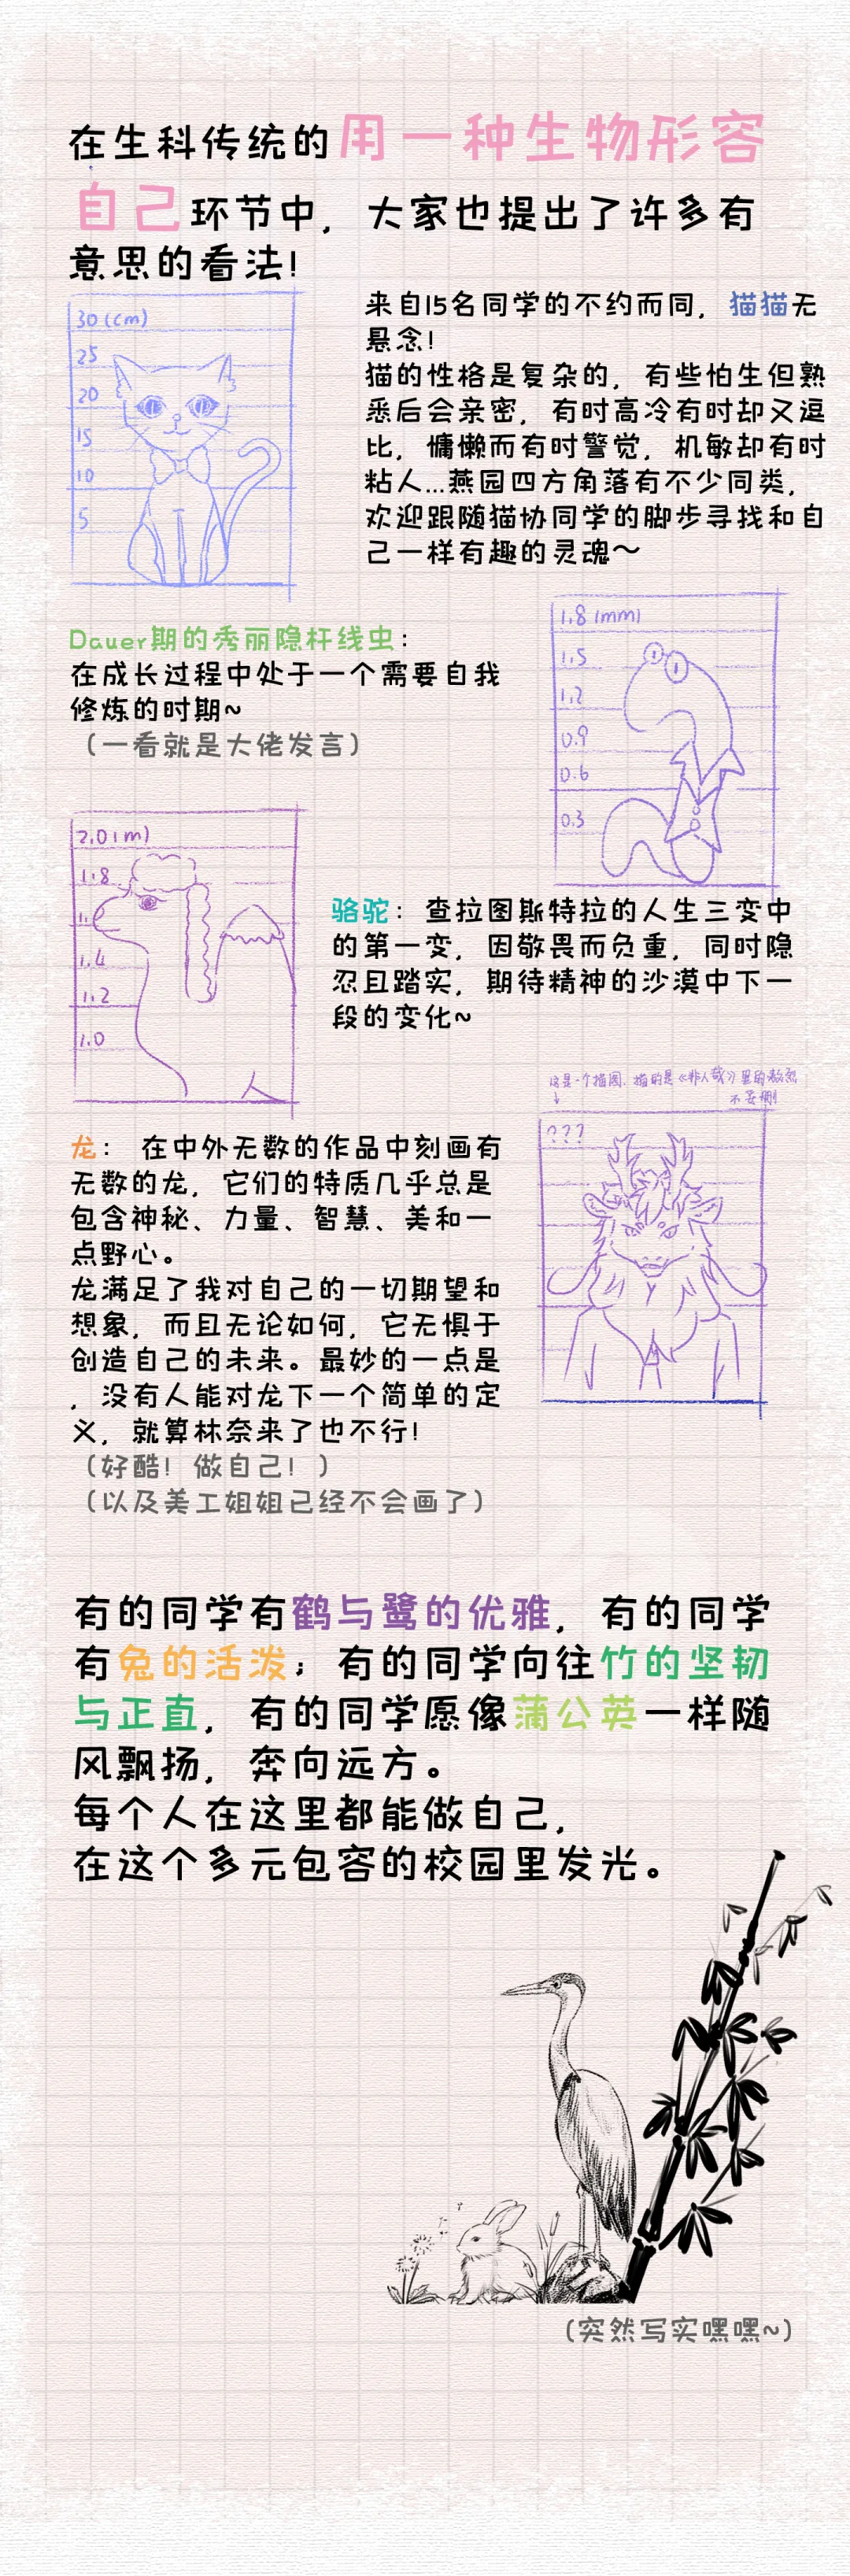 在生科传统的用一种生物形容
自己环节中，大家也提出了许多有
意思的看法！
30(cm)
25
20
15
10
5
来自15名同学的不约而同，猫猫无
悬念！
猫的性格是复杂的，有些怕生但熟
悉后会亲密，有时高冷有时却又逗
比，慵懒而有时警觉，机敏却有时
粘人...燕园四方角落有不少同类，
欢迎跟随猫协同学的脚步寻找和自
己一样有趣的灵魂～
Dauer期的秀丽隐杆线虫：
在成长过程中处于一个需要自我
修炼的时期~
（一看就是大佬发言）
1.8(mm)
1.5
1.2
0.9
0.6
0.3
2.0(m)
1.8
1.4
1.2
1.0
骆驼：查拉图斯特拉的人生三变中
的第一变，因敬畏而负重，同时隐
忍且踏实，期待精神的沙漠中下一
段的变化~
这是一个描图，描的是《非人哉》里的敖烈
不要捌
↓
???
龙： 在中外无数的作品中刻画有
无数的龙，它们的特质几乎总是
包含神秘、力量、智慧、美和一
点野心。
龙满足了我对自己的一切期望和
想象，而且无论如何，它无惧于
创造自己的未来。最妙的一点是
，没有人能对龙下一个简单的定
义，就算林奈来了也不行！
（好酷！做自己！）
（以及美工姐姐已经不会画了）
有的同学有鹤与鹭的优雅，有的同学
有兔的活泼；有的同学向往竹的坚韧
与正直，有的同学愿像蒲公英一样随
风飘扬，奔向远方。
每个人在这里都能做自己，
在这个多元包容的校园里发光。
（突然写实嘿嘿~）